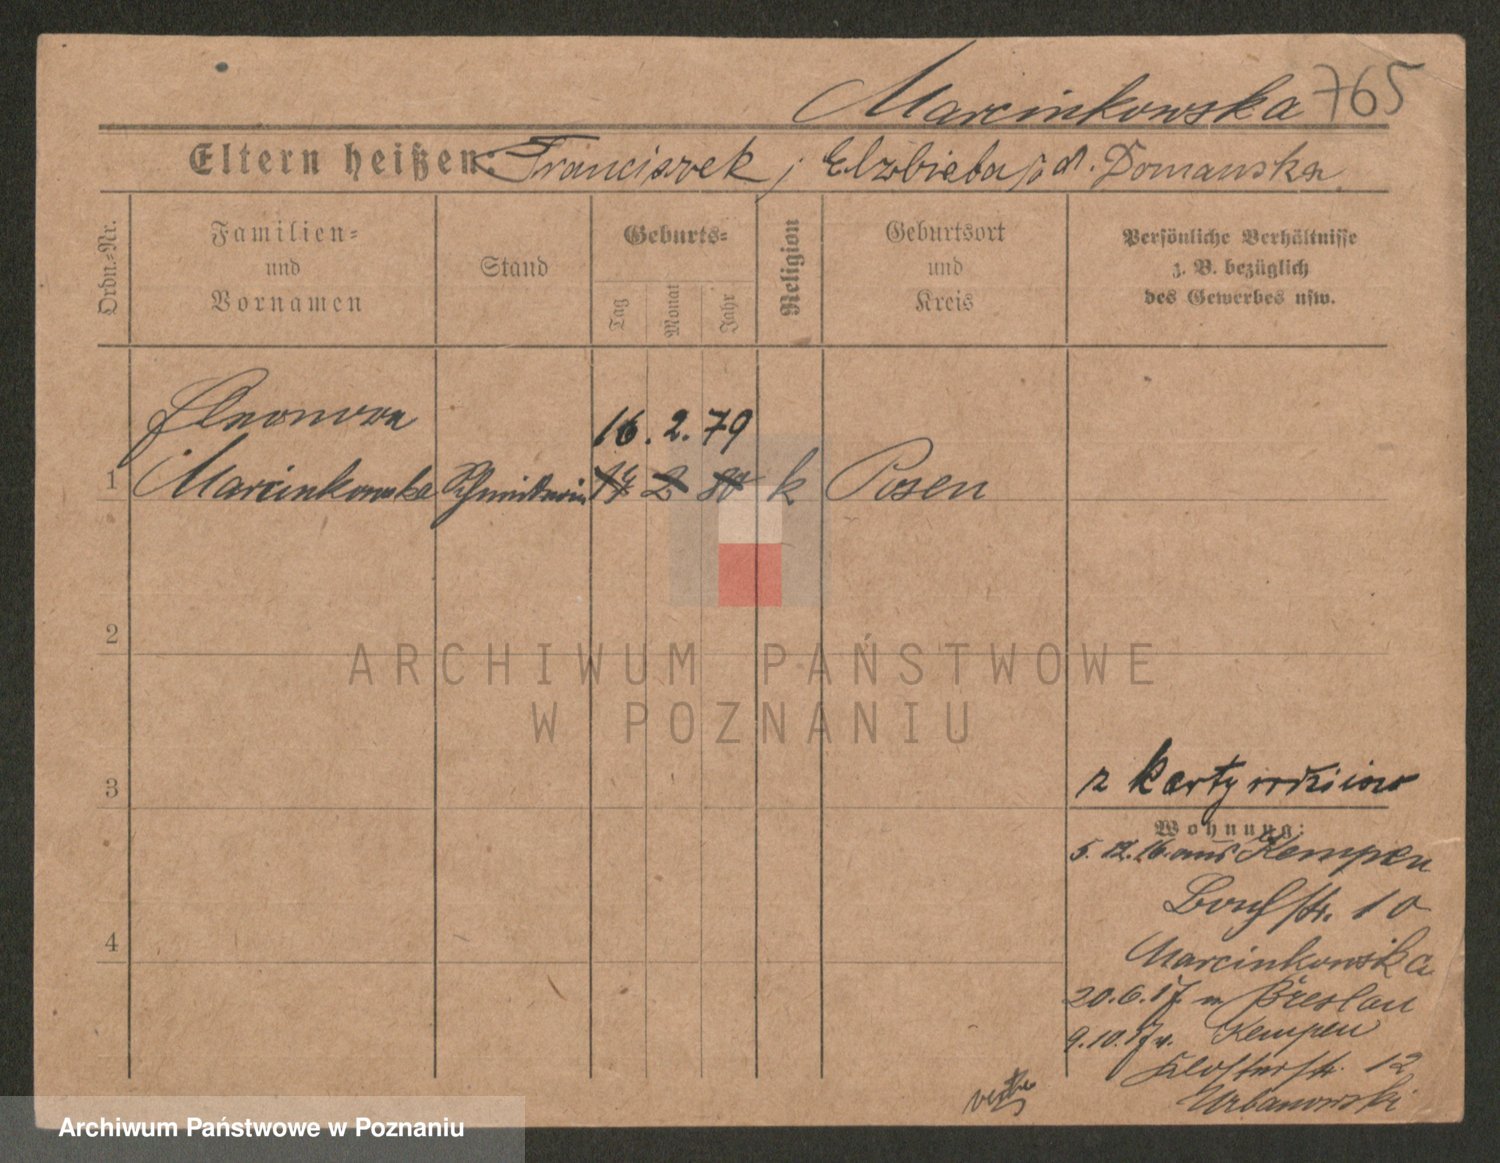 Marcinkowska 765
Eltern heißen: Franciszek, Elzbieta, d. Domanska
Ordn.-Nr.
Familien-
und
Vornamen
Stand
Geburts-
Tag
Monat
Jahr
Religion
Geburtsort
und
Kreis
Persönliche Verhältnisse
z. B. bezüglich
des Gewerbes usw.
Eleonora
16. 2. 79
1 Marcinkowska 2 k Posen
2
3
4
z karty rodziców
Wohnung:
5. 12. 16. aus Kempen
str. 10
Marcinkowska
20.6.17. n Breslau
9.10.17 v. Kempen
Klosterstr. 12
Urbanowski
ARCHIWUM PAŃSTWOWE
W POZNANIU
Archiwum Państwowe w Poznaniu